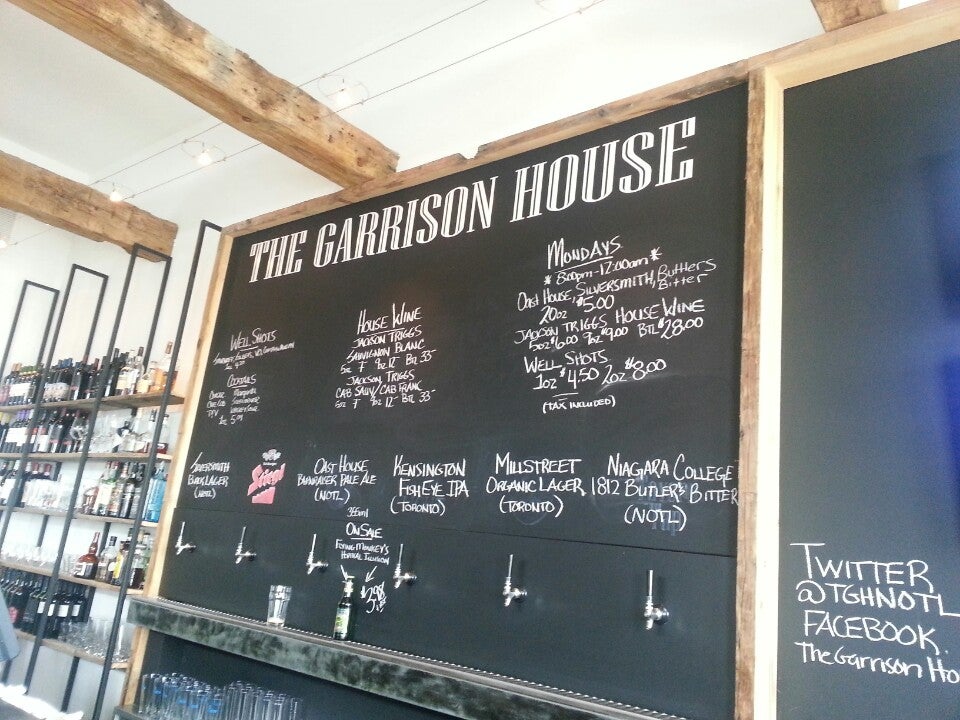 THE GARRISON HOUSE
MONDAYS
* 8:00pm-12:00am *
OAST HOUSE, SILVERSMITH, BUTLERS
BITTER
20oz $5.00
JACKSON TRIGGS HOUSE WINE
5oz $6.00 9oz $9.00 BTL $28.00
WELL SHOTS
1oz $4.50 2oz $8.00
(TAX INCLUDED)
HOUSE WINE
JACKSON TRIGGS
SAUVIGNON BLANC
5oz 7 9oz 12 BTL 33
JACKSON TRIGGS
CAB SAUV/CAB FRANC
5oz 7 9oz 12 BTL 33
WELL SHOTS
COCKTAILS
SILVERSMITH
BLACK LAGER
(NOTL)
OAST HOUSE
BARNRAISER PALE ALE
(NOTL)
KENSINGTON
FISHEYE IPA
(TORONTO)
MILLSTREET
ORGANIC LAGER
(TORONTO)
NIAGARA COLLEGE
1812 BUTLER'S BITTER
(NOTL)
355ml
ON SALE
FLYING MONKEY'S
TWITTER
@TGHNOTL
FACEBOOK
THE GARRISON HO